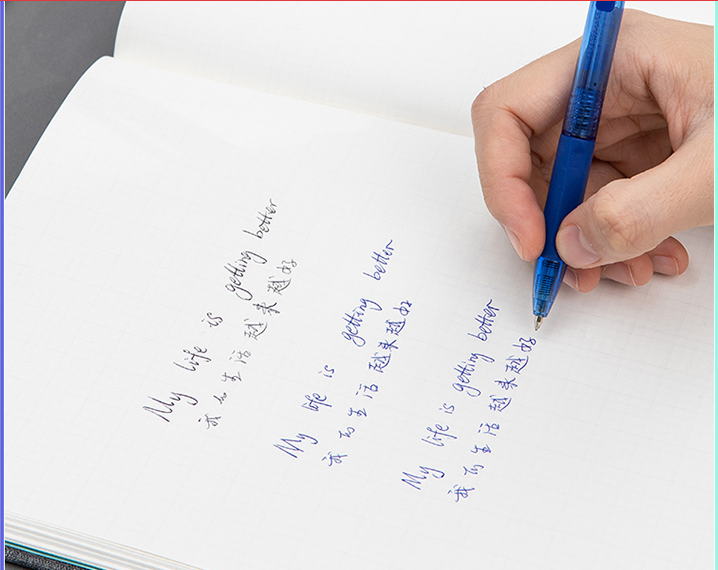 My life is getting better
我的生活越来越好
My life is getting better
我的生活越来越好
My life is getting better
我的生活越来越好